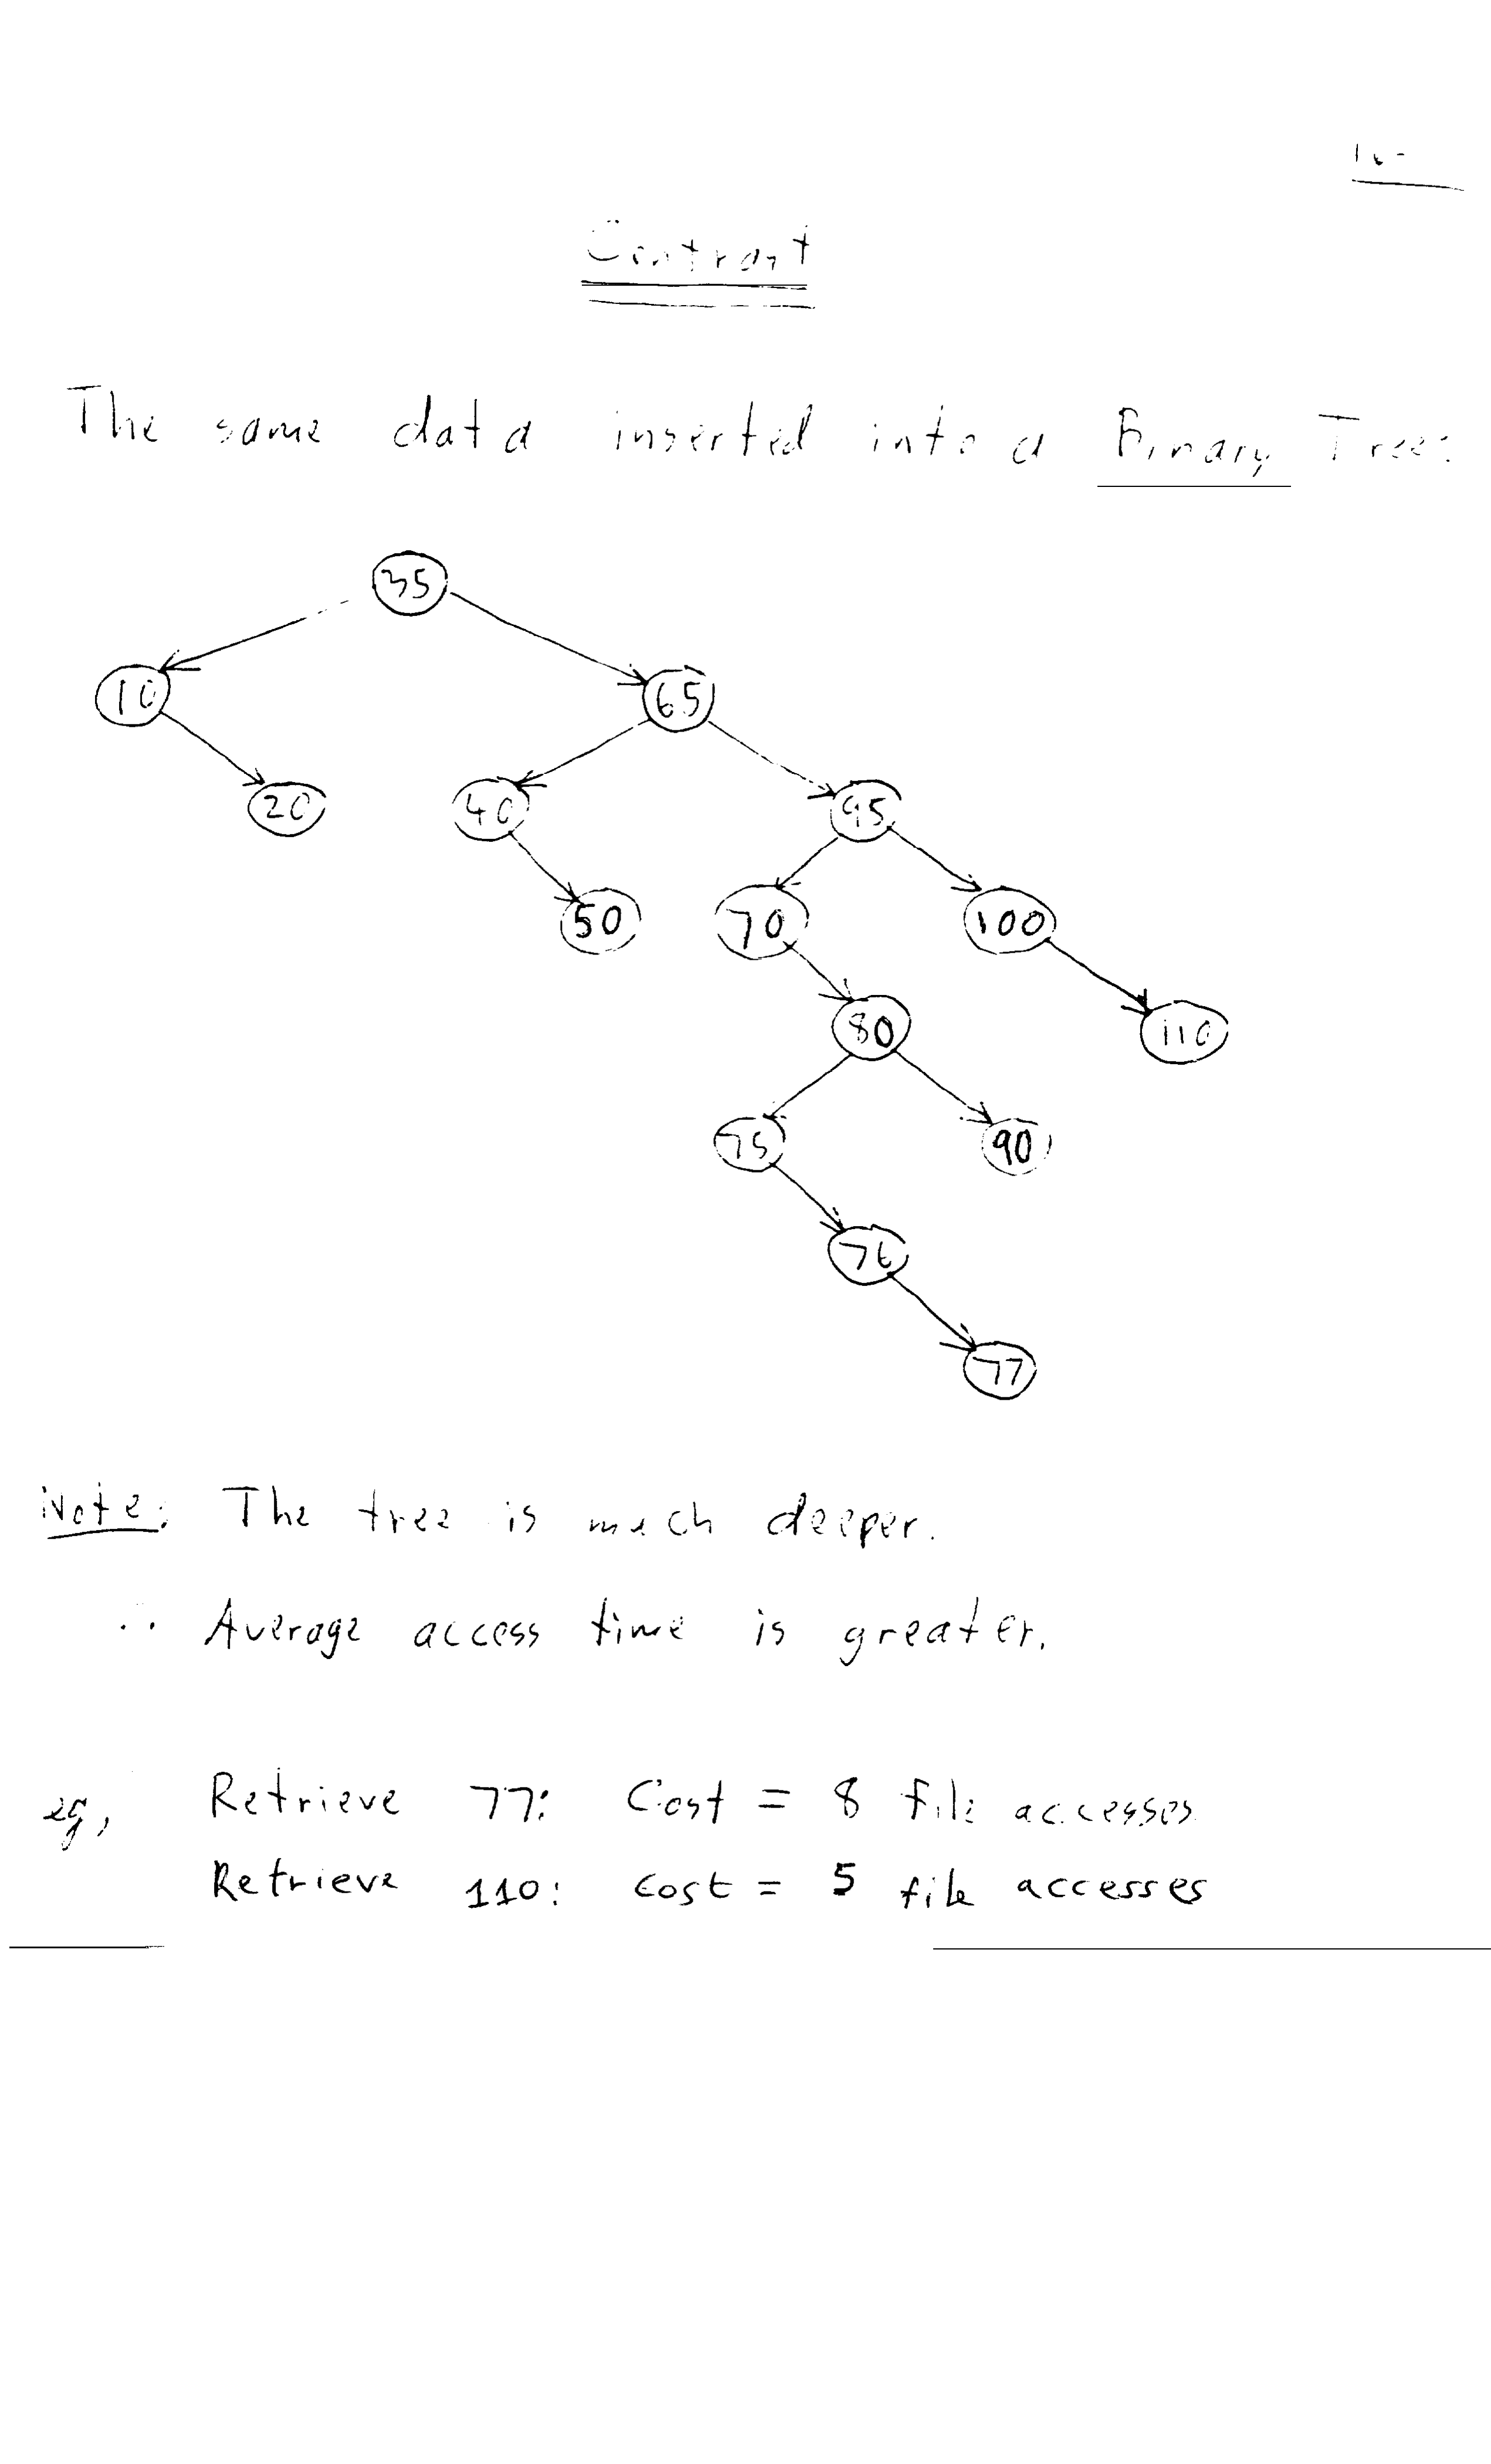 Contrast
The same data inserted into a Binary Tree:
35
10 65
20 40 95
50 70 100
80 110
75 90
76
77
Note: The tree is much deeper.
∴ Average access time is greater.
eg, Retrieve 77: Cost = 8 file accesses
Retrieve 110: cost = 5 file accesses